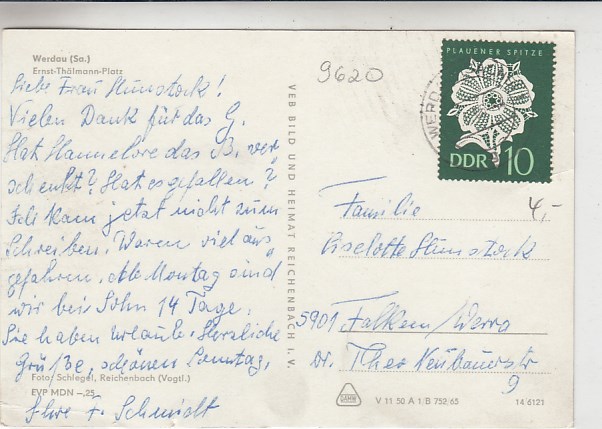 Werdau (Sa.)
Ernst-Thälmann-Platz
Liebe Frau Humstock!
Vielen Dank für das G.
Hat Hannelore das B. ver
schenkt? Hat es gefallen?
Ich kam jetzt nicht zum
Schreiben. Waren viel aus
gefahren. Montag sind
wir bei Sohn 14 Tage.
Sie haben Urlaub. Herzliche
Grüße, schönen Sonntag,
Ihre F. Schmidt
Foto: Schlegel, Reichenbach (Vogtl.)
EVP MDN –,25
VEB BILD UND HEIMAT REICHENBACH I. V.
9620
WERD
PLAUENER SPITZE
DDR 10
4,-
Familie
Liselotte Humstock
5901 Falken/Werra
Dr. Theo Neubauerstr
9
V 11 50 A 1/B 752/65
14 6121